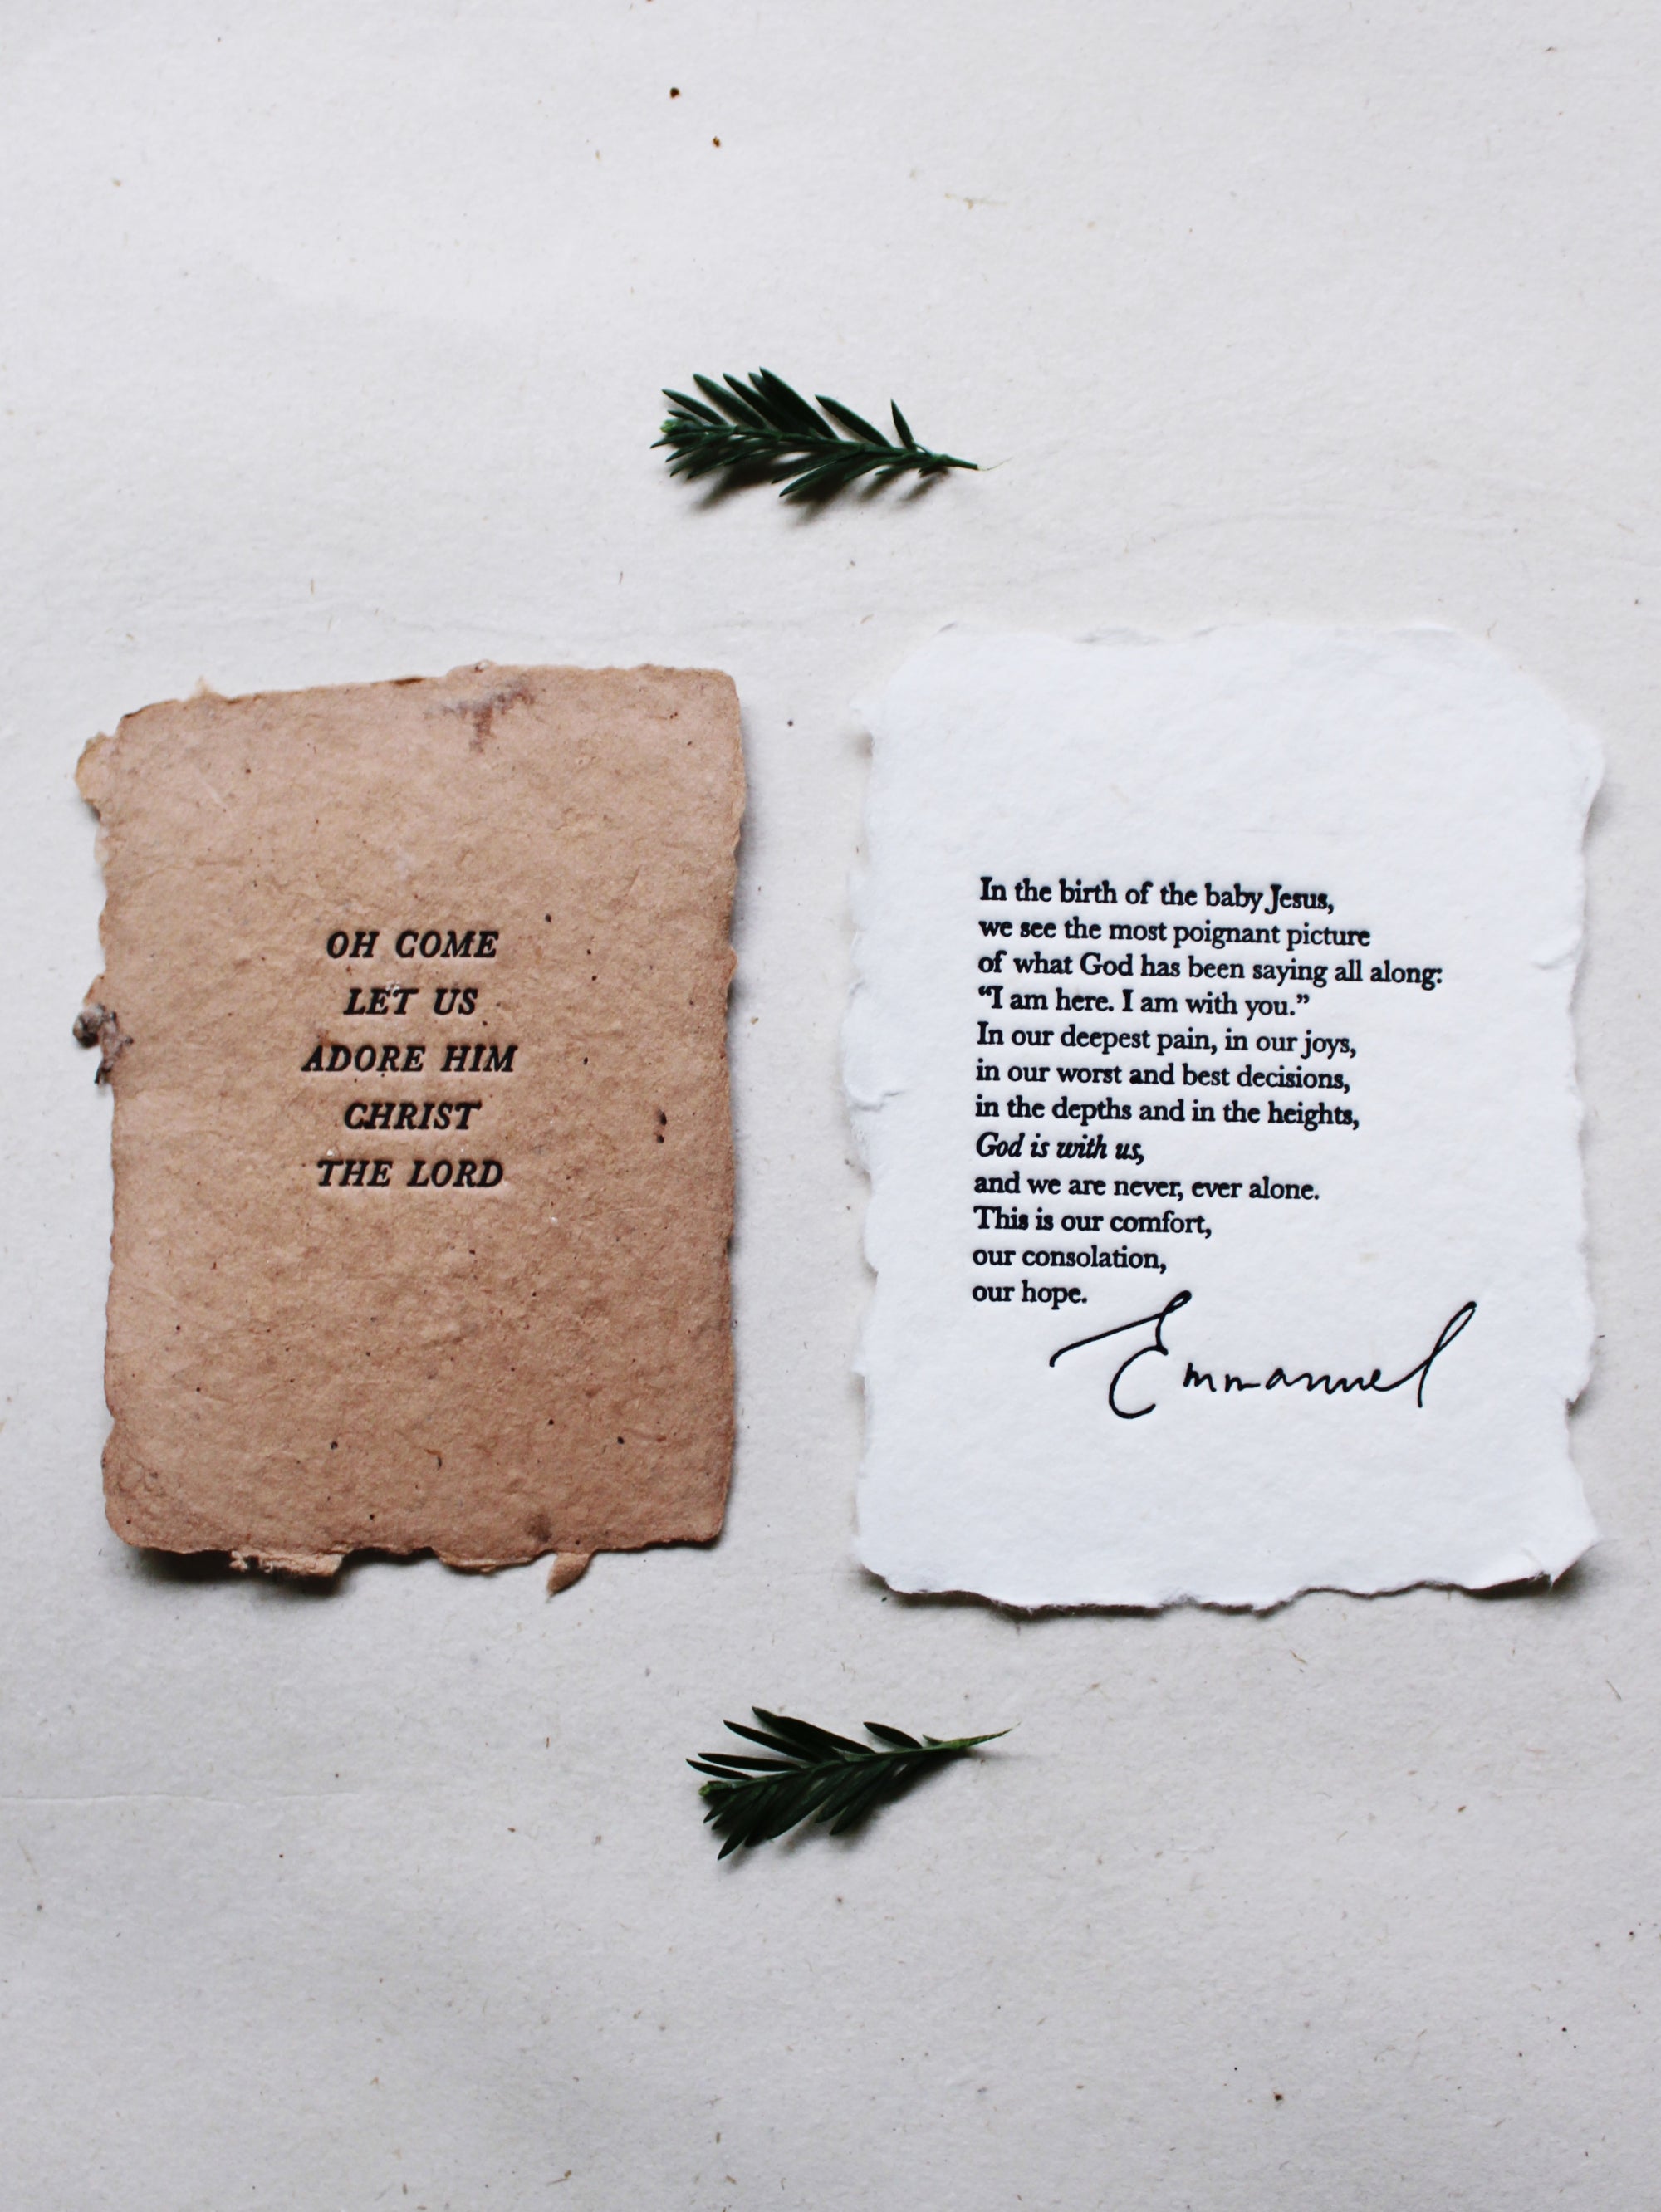 OH COME
LET US
ADORE HIM
CHRIST
THE LORD
In the birth of the baby Jesus,
we see the most poignant picture
of what God has been saying all along:
“I am here. I am with you.”
In our deepest pain, in our joys,
in our worst and best decisions,
in the depths and in the heights,
God is with us,
and we are never, ever alone.
This is our comfort,
our consolation,
our hope.
Emmanuel